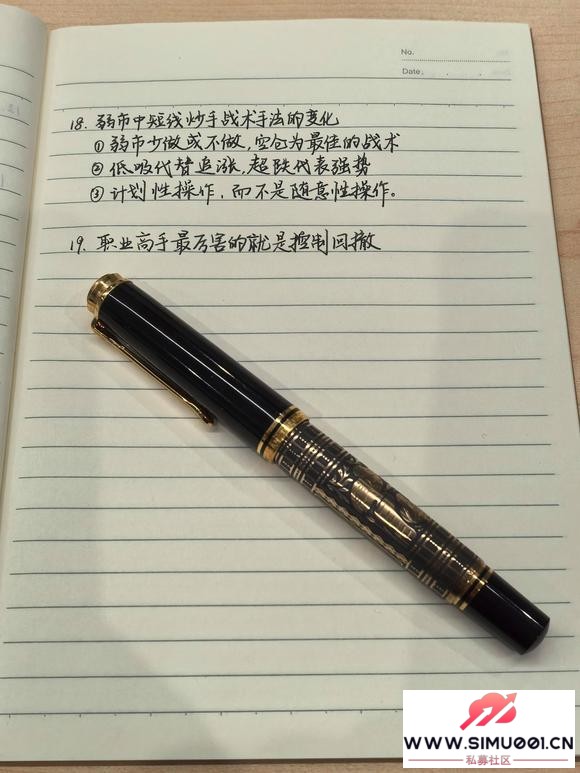 No.
Date.
18. 弱市中短线炒手战术手法的变化
① 弱市少做或不做,空仓为最佳的战术
② 低吸代替追涨,超跌代表强势
③ 计划性操作,而不是随意性操作。
19. 职业高手最厉害的就是控制回撤
WWW.SIMU001.CN
私募社区